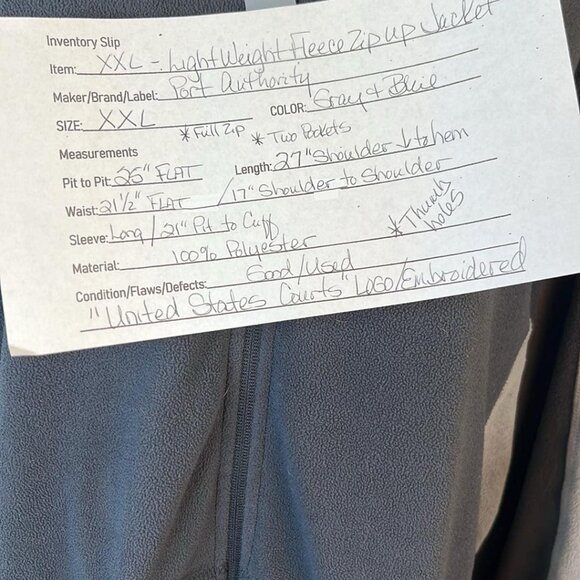 Inventory Slip
Item: XXL - Light Weight Fleece Zip up Jacket
Maker/Brand/Label: Port Authority
SIZE: XXL COLOR: Gray & Blue
* Full Zip * Two Pockets
Measurements
Pit to Pit: 25" FLAT Length: 27" Shoulder ↓ to hem
Waist: 21 1/2" FLAT / 17" Shoulder to Shoulder
Sleeve: Long / 21" Pit to Cuff * Thumb holes
Material: 100% Polyester
Condition/Flaws/Defects: Good/Used
"United States Courts" Logo/Embroidered